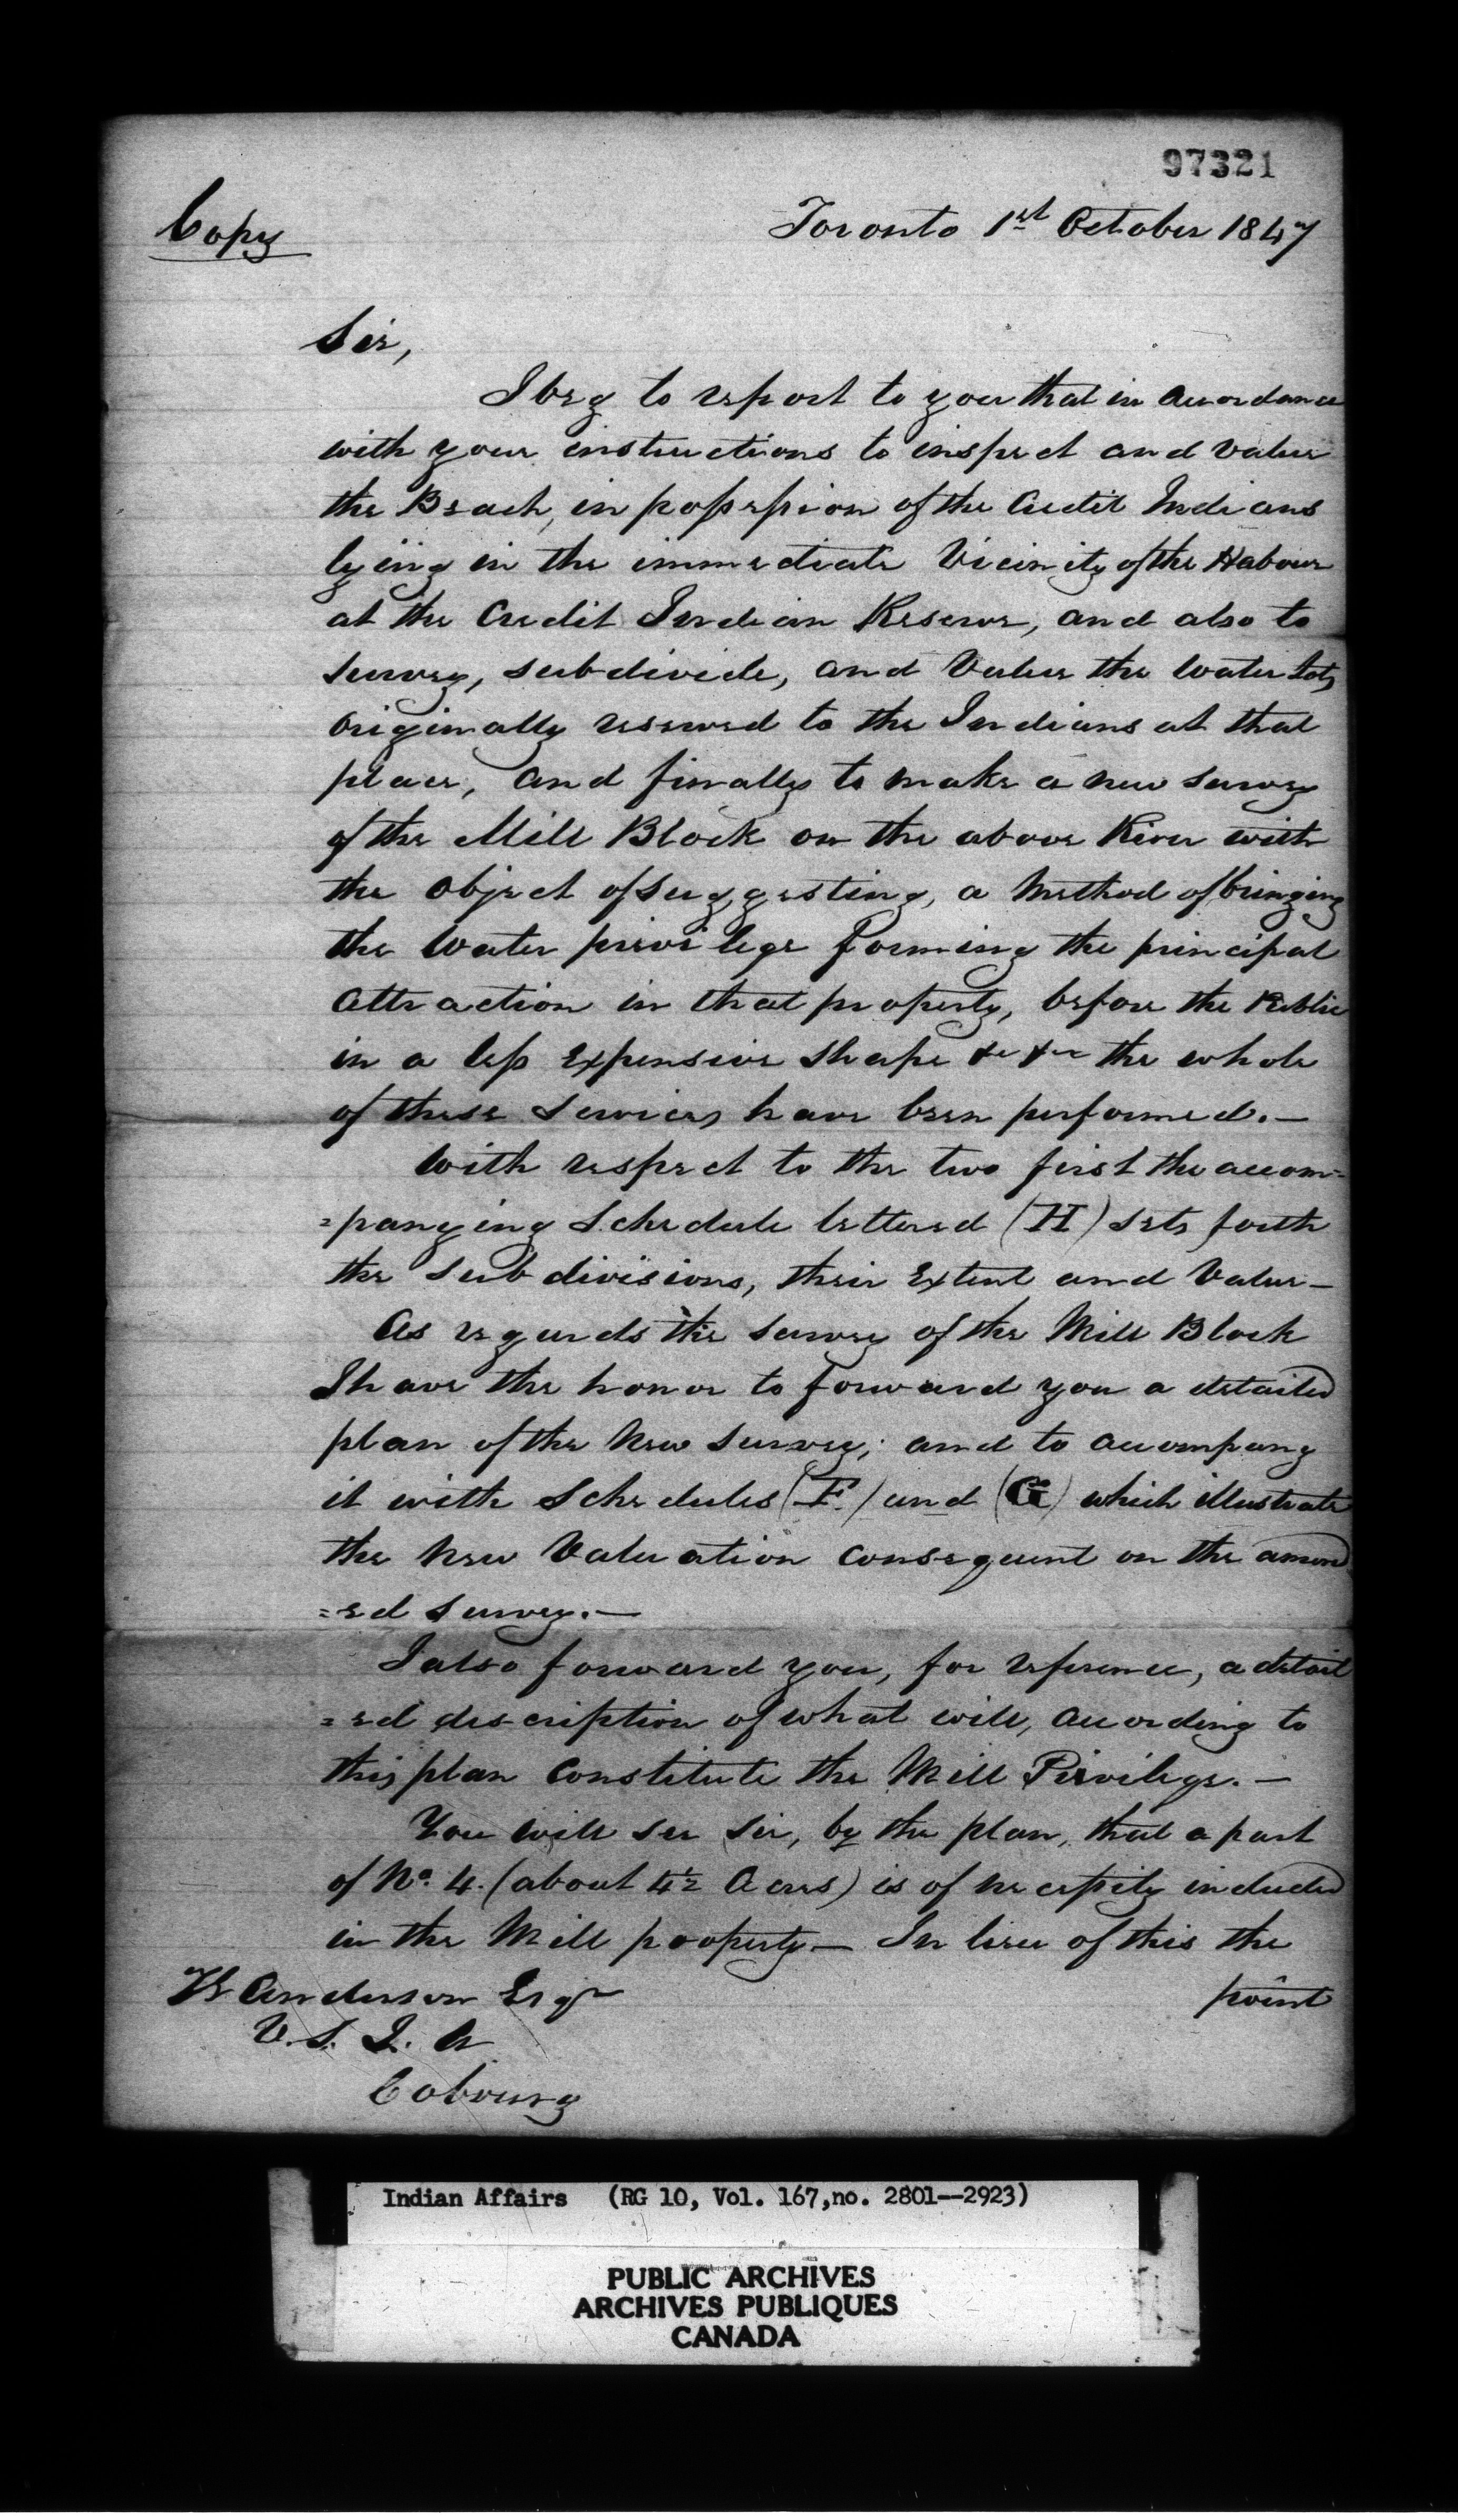 97321
Copy
Toronto 1st October 1847
Sir,
I beg to report to you that in accordance
with your instructions to inspect and value
the Beach, in possession of the Credit Indians
lying in the immediate Vicinity of the Habour
at the Credit Indian Reserve, and also to
survey, subdivide, and Value the Water Lots
originally reserved to the Indians at that
place, and finally to make a new survey
of the Mill Block on the above River with
the object of suggesting, a Method of bringing
the Water privilege forming the principal
attraction in that property, before the Public
in a less expensive shape &c &c the whole
of these Services have been performed.—
With respect to the two first the accom-
=panying Schedule lettered (H) sets forth
the Subdivisions, their Extent and Value—
As regards the survey of the Mill Block
I have the honor to forward you a detailed
plan of the New Survey; and to accompany
it with Schedules (F.) and (G) which illustrate
the New Valuation consequent on the amend
=ed Survey.—
I also forward you, for reference, a detail
=ed description of what will, according to
this plan constitute the Mill Privilege.—
You will see Sir, by the plan, that a part
of No. 4. (about 4½ Acres) is of necessity included
in the Mill property— In lieu of this the
point
Anderson Esqr
V. S. I. A
Cobourg
Indian Affairs (RG 10, Vol. 167,no. 2801--2923)
PUBLIC ARCHIVES
ARCHIVES PUBLIQUES
CANADA